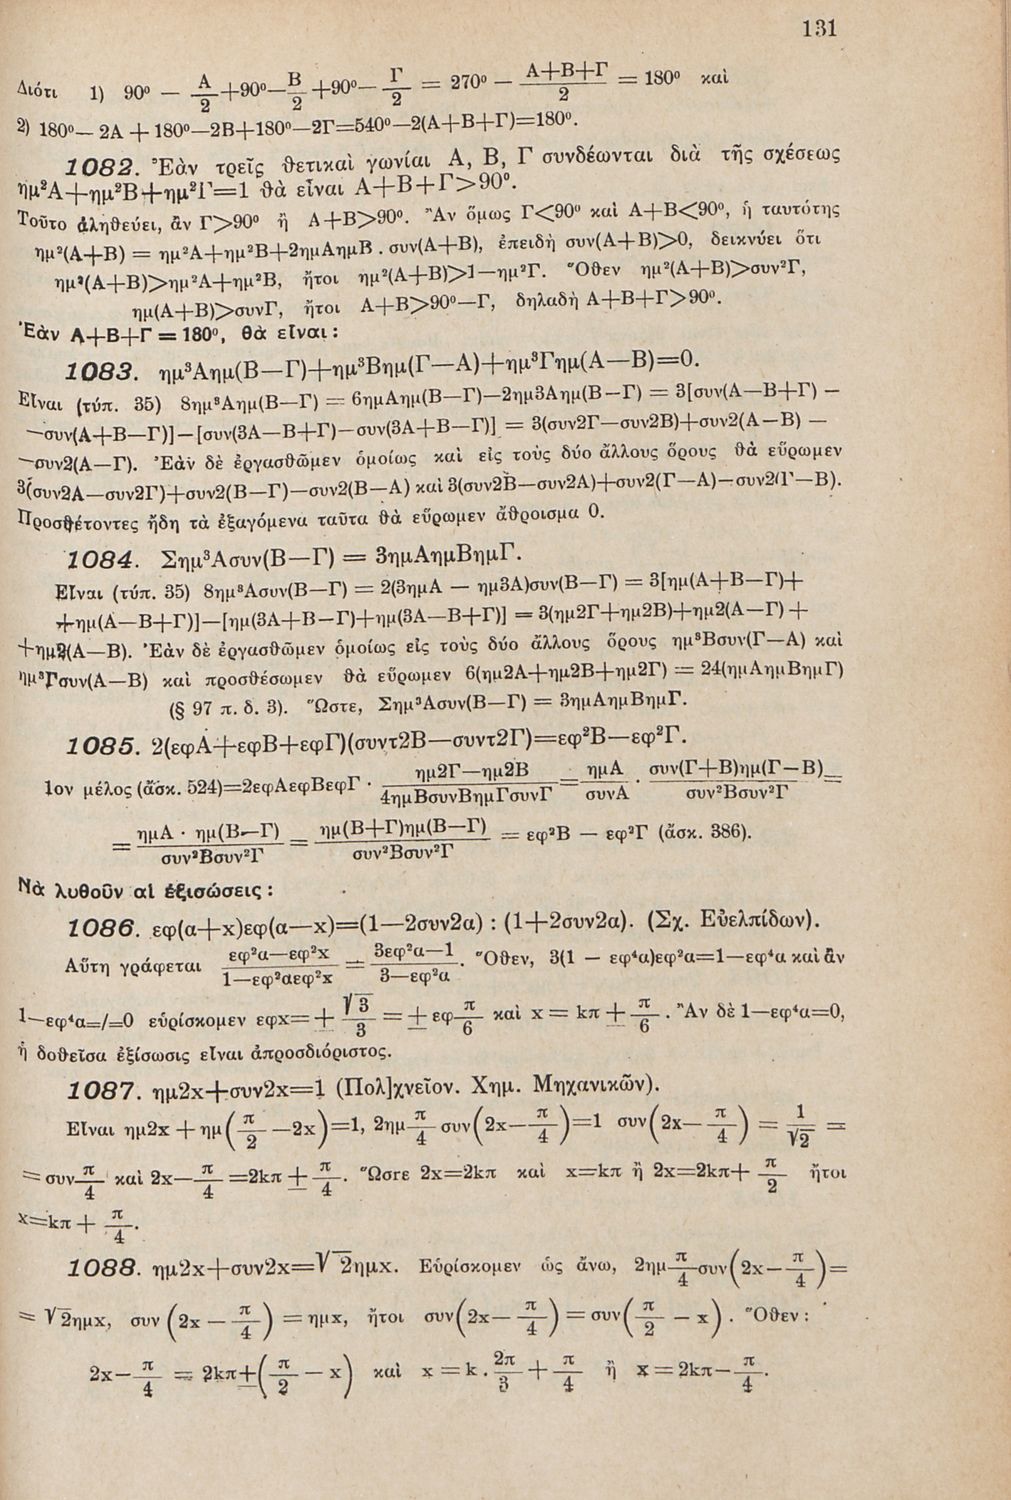 131
Διότι 1) 90⁰ — Α/2 +90⁰— Β/2 +90⁰— Γ/2 = 270⁰ — (Α+Β+Γ)/2 = 180⁰ καὶ
2) 180⁰— 2Α + 180⁰—2Β+180⁰—2Γ=540⁰—2(Α+Β+Γ)=180⁰.
1082. Ἐὰν τρεῖς θετικαὶ γωνίαι Α, Β, Γ συνδέωνται διὰ τῆς σχέσεως
ημ²Α+ημ²Β+ημ²Γ=1 θὰ εἶναι Α+Β+Γ>90⁰.
Τοῦτο ἀληθεύει, ἂν Γ>90⁰ ἢ Α+Β>90⁰. Ἂν ὅμως Γ<90⁰ καὶ Α+Β<90⁰, ἡ ταυτότης
ημ²(Α+Β) = ημ²Α+ημ²Β+2ημΑημΒ . συν(Α+Β), ἐπειδὴ συν(Α+Β)>0, δεικνύει ὅτι
ημ²(Α+Β)>ημ²Α+ημ²Β, ἤτοι ημ²(Α+Β)>1—ημ²Γ. Ὅθεν ημ²(Α+Β)>συν²Γ,
ημ(Α+Β)>συνΓ, ἤτοι Α+Β>90⁰—Γ, δηλαδὴ Α+Β+Γ>90⁰.
Ἐὰν Α+Β+Γ = 180⁰, θὰ εἶναι :
1083. ημ³Αημ(Β—Γ)+ημ³Βημ(Γ—Α)+ημ³Γημ(Α—Β)=0.
Εἶναι (τύπ. 35) 8ημ³Αημ(Β—Γ) = 6ημΑημ(Β—Γ)—2ημ3Αημ(Β—Γ) = 3[συν(Α—Β+Γ) —
—συν(Α+Β—Γ)]—[συν(3Α—Β+Γ)—συν(3Α+Β—Γ)] = 3(συν2Γ—συν2Β)+συν2(Α—Β) —
—συν2(Α—Γ). Ἐὰν δὲ ἐργασθῶμεν ὁμοίως καὶ εἰς τοὺς δύο ἄλλους ὅρους θὰ εὕρωμεν
3(συν2Α—συν2Γ)+συν2(Β—Γ)—συν2(Β—Α) καὶ 3(συν2Β—συν2Α)+συν2(Γ—Α)—συν2(Γ—Β).
Προσθέτοντες ἤδη τὰ ἐξαγόμενα ταῦτα θὰ εὕρωμεν ἄθροισμα 0.
1084. Σημ³Ασυν(Β—Γ) = 3ημΑημΒημΓ.
Εἶναι (τύπ. 35) 8ημ³Ασυν(Β—Γ) = 2(3ημΑ — ημ3Α)συν(Β—Γ) = 3[ημ(Α+Β—Γ)+
+ημ(Α—Β+Γ)]—[ημ(3Α+Β—Γ)+ημ(3Α—Β+Γ)] = 3(ημ2Γ+ημ2Β)+ημ2(Α—Γ) +
+ημ2(Α—Β). Ἐὰν δὲ ἐργασθῶμεν ὁμοίως εἰς τοὺς δύο ἄλλους ὅρους ημ³Βσυν(Γ—Α) καὶ
ημ³Γσυν(Α—Β) καὶ προσθέσωμεν θὰ εὕρωμεν 6(ημ2Α+ημ2Β+ημ2Γ) = 24(ημΑημΒημΓ)
(§ 97 π. δ. 3). Ὥστε, Σημ³Ασυν(Β—Γ) = 3ημΑημΒημΓ.
1085. 2(εφΑ+εφΒ+εφΓ)(συντ2Β—συντ2Γ)=εφ²Β—εφ²Γ.
1ον μέλος (ἄσκ. 524)=2εφΑεφΒεφΓ · (ημ2Γ—ημ2Β)/(4ημΒσυνΒημΓσυνΓ) = ημΑ/συνΑ · συν(Γ+Β)ημ(Γ—Β)/συν²Βσυν²Γ =
= ημΑ · ημ(Β—Γ)/συν²Βσυν²Γ = ημ(Β+Γ)ημ(Β—Γ)/συν²Βσυν²Γ = εφ²Β — εφ²Γ (ἄσκ. 386).
Νὰ λυθοῦν αἱ ἐξισώσεις :
1086. εφ(α+x)εφ(α—x)=(1—2συν2α) : (1+2συν2α). (Σχ. Εὐελπίδων).
Αὕτη γράφεται (εφ²α—εφ²x)/(1—εφ²αεφ²x) = (3εφ²α—1)/(3—εφ²α). Ὅθεν, 3(1 — εφ⁴α)εφ²α=1—εφ⁴α καὶ ἂν
1—εφ⁴α=/=0 εὑρίσκομεν εφx= ± √3/3 = ± εφ π/6 καὶ x = kπ ± π/6 . Ἂν δὲ 1—εφ⁴α=0,
ἡ δοθεῖσα ἐξίσωσις εἶναι ἀπροσδιόριστος.
1087. ημ2x+συν2x=1 (Πολ]χνεῖον. Χημ. Μηχανικῶν).
Εἶναι ημ2x + ημ(π/2 —2x)=1, 2ημ π/4 συν(2x— π/4)=1 συν(2x— π/4) = 1/√2 =
= συν π/4 καὶ 2x— π/4 =2kπ ± π/4. Ὥστε 2x=2kπ καὶ x=kπ ἢ 2x=2kπ+ π/2 ἤτοι
x=kπ + π/4.
1088. ημ2x+συν2x=√2ημx. Εὑρίσκομεν ὡς ἄνω, 2ημ π/4 συν(2x— π/4)=
= √2ημx, συν (2x — π/4) = ημx, ἤτοι συν(2x— π/4) = συν(π/2 — x) . Ὅθεν :
2x— π/4 = 2kπ±(π/2 — x) καὶ x = k . 2π/3 + π/4 ἢ x = 2kπ— π/4.